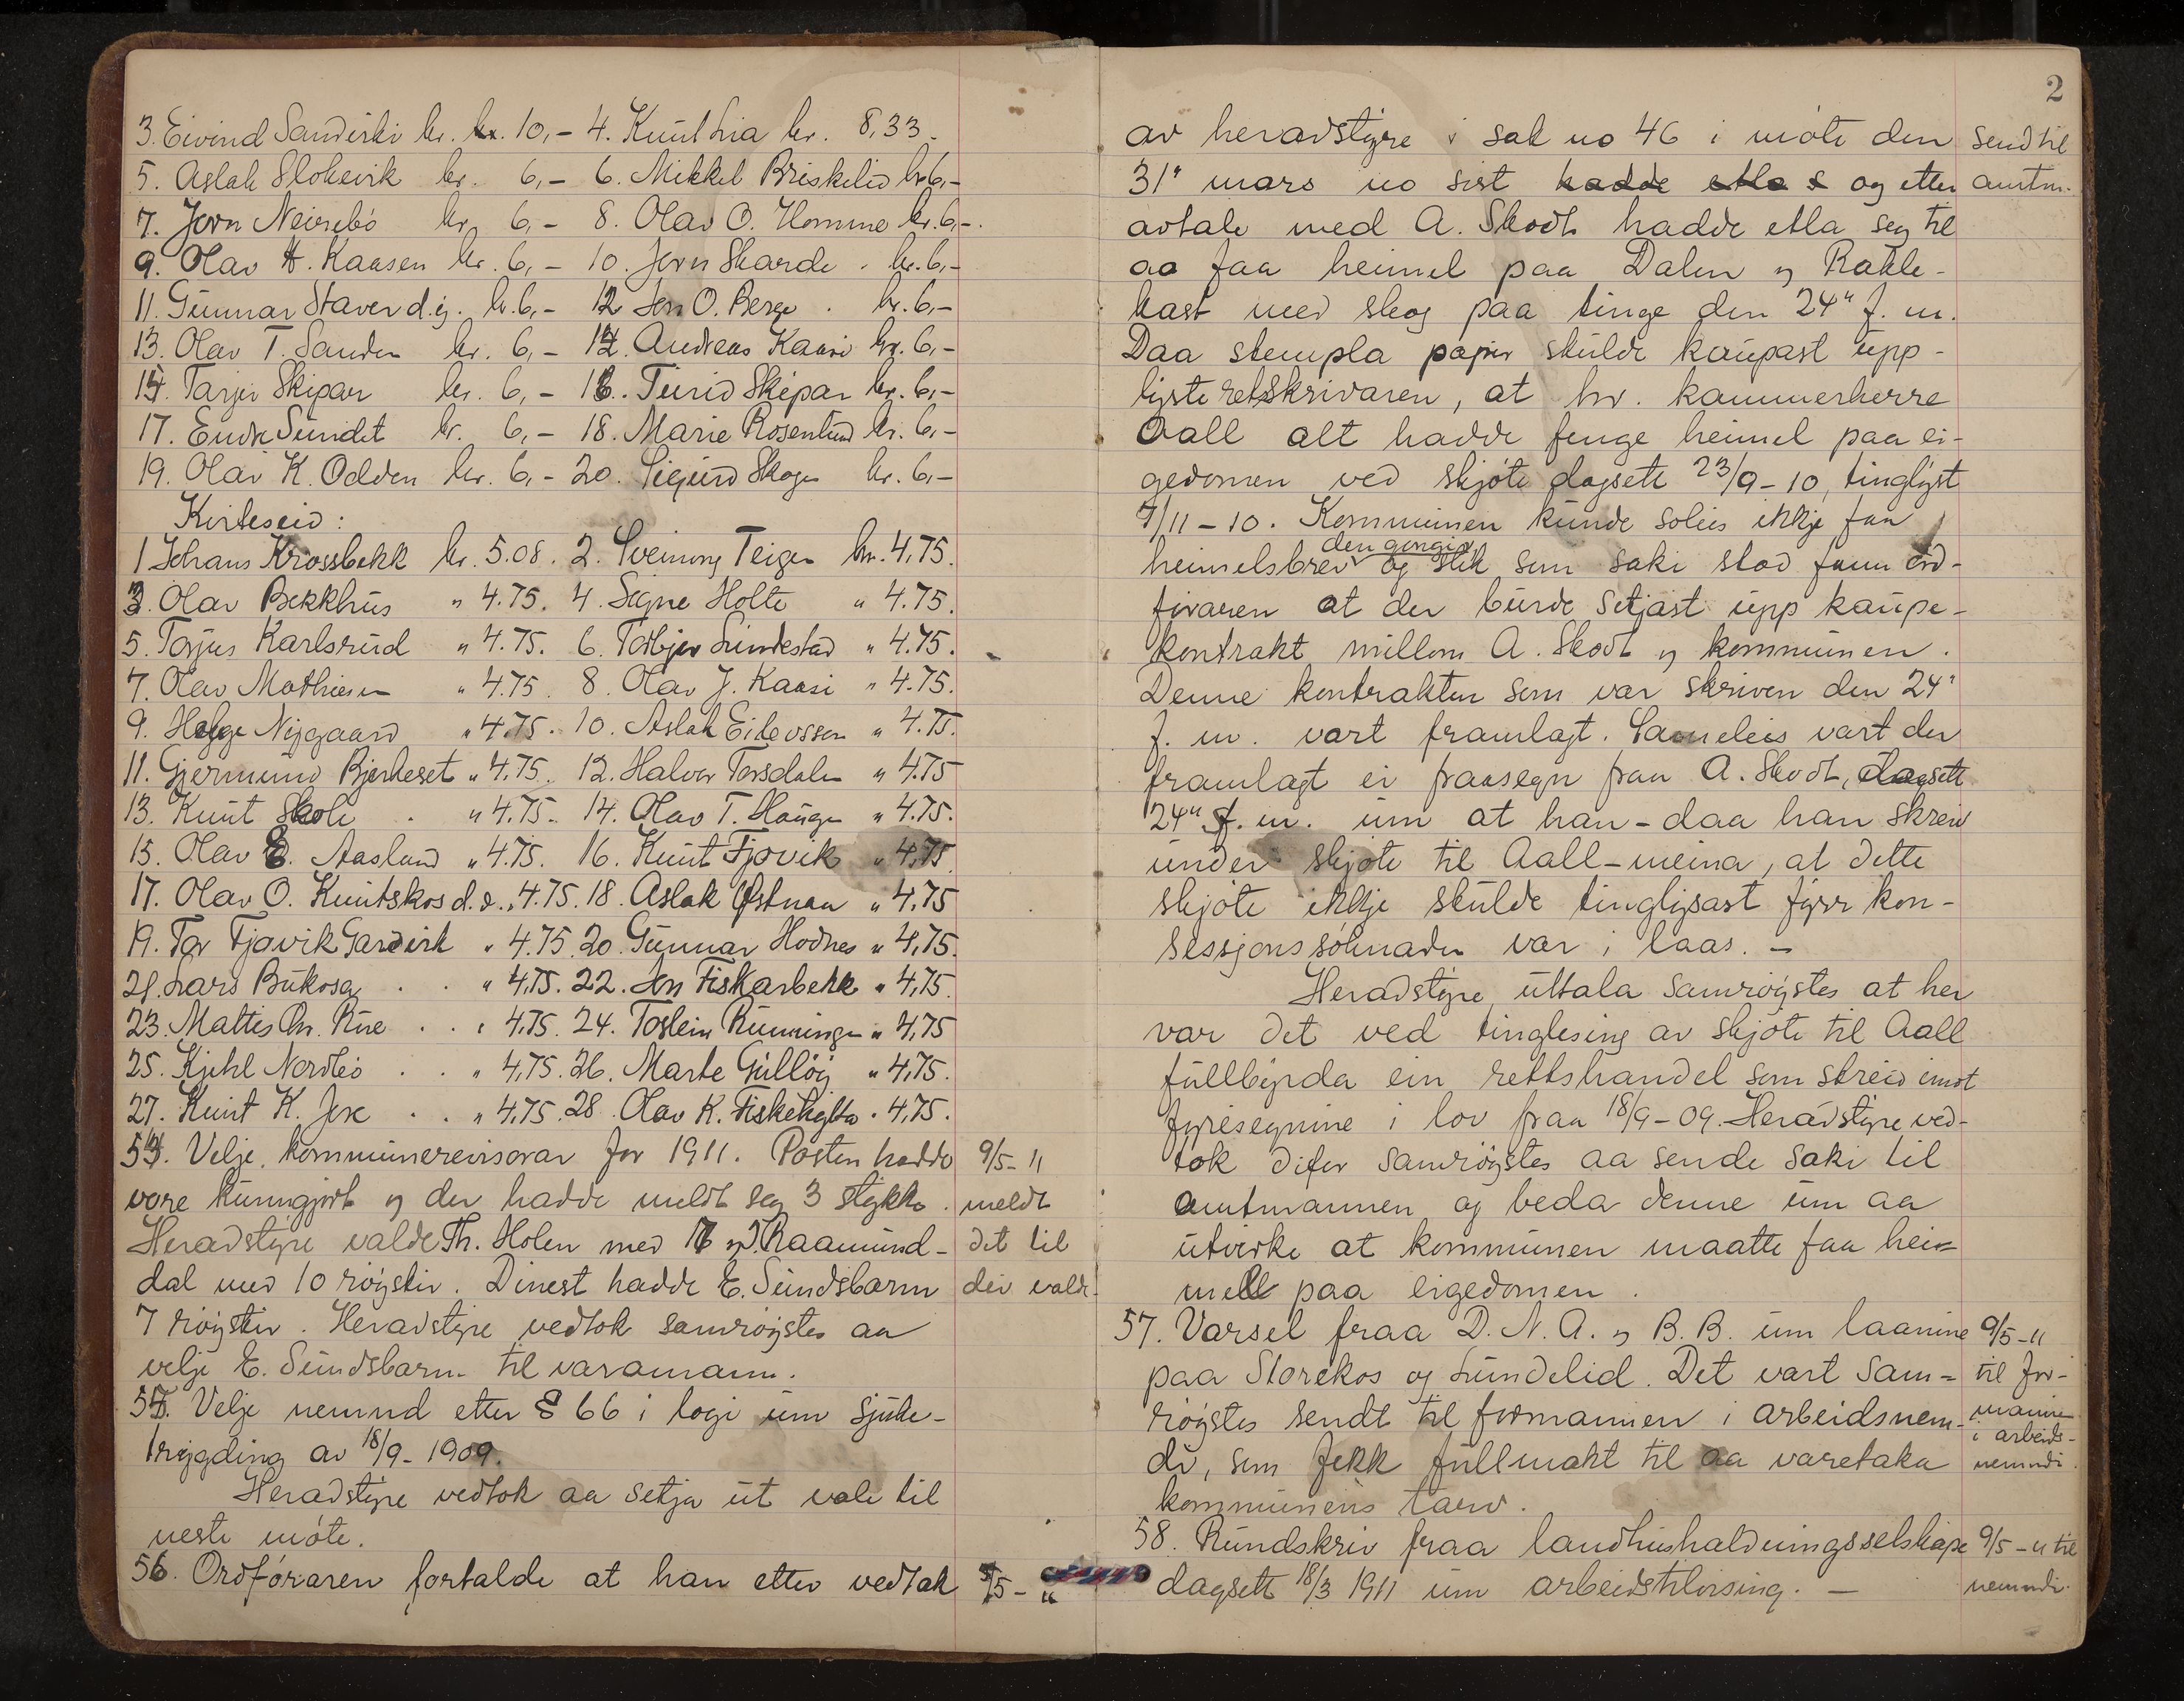 3. Eivind Sandirki kr. 10,- 4. Knut Lia kr. 8,33.
5. Aslak Slokvik kr. 6,- 6. Mikkel Briskelid kr 6,-
7. Jorn Neirebö kr. 6,- 8. Olav O. Homme kr. 6,-.
9. Olav H. Kaasen kr. 6,- 10. Jorn Skarde. kr. 6,-
11. Gunnar Staver d.y. kr. 6,- 12 Jon O. Berge . kr. 6,-
13. Olav T. Sanden kr. 6,- 14. Andreas Kaasi kr. 6,-
15. Tarjei Skipar kr. 6,- 16. Turid Skipar kr. 6,-
17. Endre Sundet kr. 6,- 18. Marie Rosenlund kr. 6,-
19. Olav K. Odden kr. 6,- 20. Sigurd Skogen kr. 6,-
Kviteseid:
1 Johans Krossbekk kr. 5.08. 2. Sveinung Teigen kr. 4,75.
3. Olav Bekkhus " 4.75. 4. Signe Holte " 4.75.
5. Torjus Karlsrud " 4.75. 6. Torbjør Lundestad " 4.75.
7. Olav Mathisen " 4.75. 8. Olav J. Kaasi " 4.75.
9. Helge Nygaard " 4.75. 10. Aslak Eilevssen " 4.75.
11. Gjermund Bjørkeset " 4,75. 12. Halvor Torsdalen " 4.75
13. Knut Skole . " 4.75. 14. Olav T. Haugen " 4.75.
15. Olav E. Aasland " 4.75. 16. Knut Fjovik " 4,75
17. Olav O. Kuntskos d.e. " 4.75. 18. Aslak Østnaa " 4,75
19. Tor Fjovik Gardvik " 4.75 20. Gunnar Hodnes " 4,75.
21. Lars Bukosa . . " 4,75. 22. Jon Fiskarbekk " 4,75.
23. Mattis Chr. Rue . . " 4,75. 24. Toslein Runningen " 4,75
25. Kjetil Nordbö . . " 4,75. 26. Marte Gullöy " 4,75.
27. Knut K. Jore . . " 4,75. 28. Olav K. Fisketjylta . 4,75.
54. Velje kommunerevisorar for 1911. Posten hadde
vore kunngjort og der hadde meldt seg 3 stykke.
Heradstyre valde Th. Holen med 16 og T. Raamund-
dal med 10 röyster. Dinest hadde E. Sundsbarm
7 röyster. Heradstyre vedtok samröystes aa
velje E. Sundsbarm til varamann.
9/5-11
meldt
det til
dei valde.
55. Velje nemnd etter § 66 i logi um sjuke-
trygding av 18/9-1909.
Heradstyre vedtok aa setja ut vale til
neste möte.
56. Ordföraren fortalde at han etter vedtak
9/5-11
2
av heradstyre i sak no 46 i möte den
31" mars no sist hadde etla s og etter
avtale med A. Skodt hadde etla seg til
aa faa heimel paa Dalen og Rakle-
kast med skog paa tinge den 24" f. m.
Daa stempla papir skulde kaupast upp-
lyste retsskrivaren, at hr. kammerherre
Aall alt hadde fenge heimel paa ei-
gedomen ved skjöte dagsett 23/9-10, tinglyst
7/11-10. Kommunen kunde soleis ikkje faa
heimelsbrev den gongin og slik som saki stod fann ord-
föraren at der burde setjast upp kaupe-
kontrakt millom A. Skodt og kommunen.
Denne kontrakten som var skriven den 24"
f. m. vart framlagt. Sameleis vart der
framlagt ei fraasegn fraa A. Skodt, dagsett
24" f. m. um at han - daa han skreiv
under skjöte til Aall - meina, at dette
skjöte ikkje skulde tinglysast fyrr kon-
sessjonssöknaden var i laas. -
Heradstyre uttala samröystes at her
var det ved tinglesing av skjöte til Aall
fullbyrda ein rettshandel som streid imot
fyresegnine i lov fraa 18/9-09. Heradstyre ved-
tok difor samröystes aa sende saki til
amtmannen og beda denne um aa
utvirke at kommunen maatte faa hei=
mell paa eigedomen.
send til
amtm.
57. Varsel fraa D. N. A. og B. B. um laanine
paa Storekos og Lundelid. Det vart sam=
röystes sendt til formannen i arbeidsnem-
di, som fekk fullmakt til aa varetaka
kommunens tarv.
9/5-11
til for-
mannen
i arbeids-
nemndi.
58. Rundskriv fraa landhushaldningsselskape
dagsett 18/3 1911 um arbeidstilvising. -
9/5-11 til
nemndi.